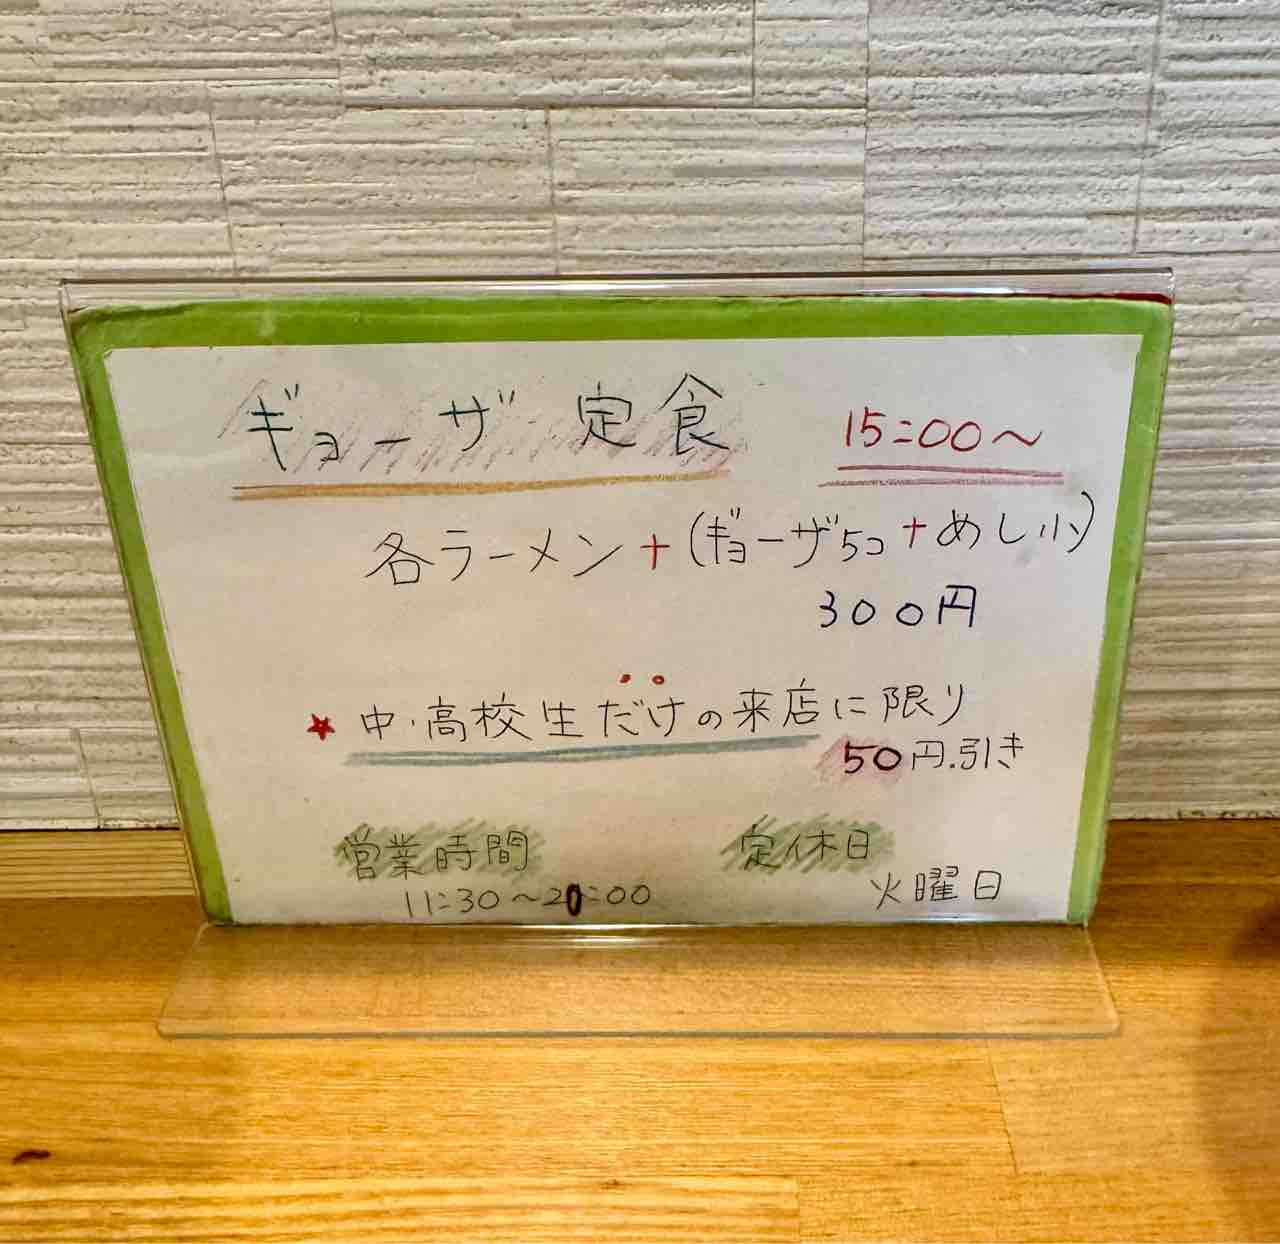 ギョーザ定食 15:00〜
各ラーメン+(ギョーザ5コ+めし小)
300円
★中・高校生だけの来店に限り
50円引き
営業時間 定休日
11:30〜20:00 火曜日